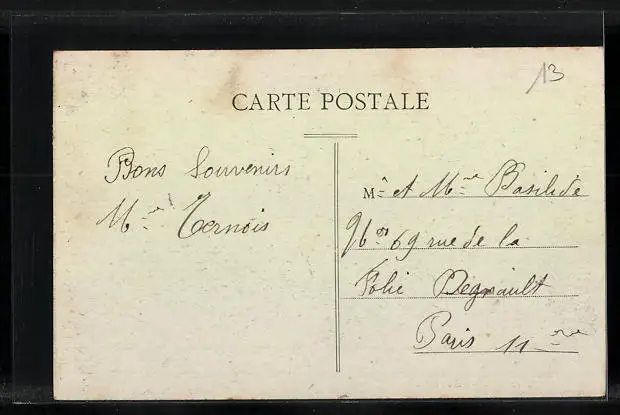 13
CARTE POSTALE
Bons Souvenirs
Mme Ternois
Mr et Mme Basilide
No 69 rue de la
Folie Régnault
Paris 11me